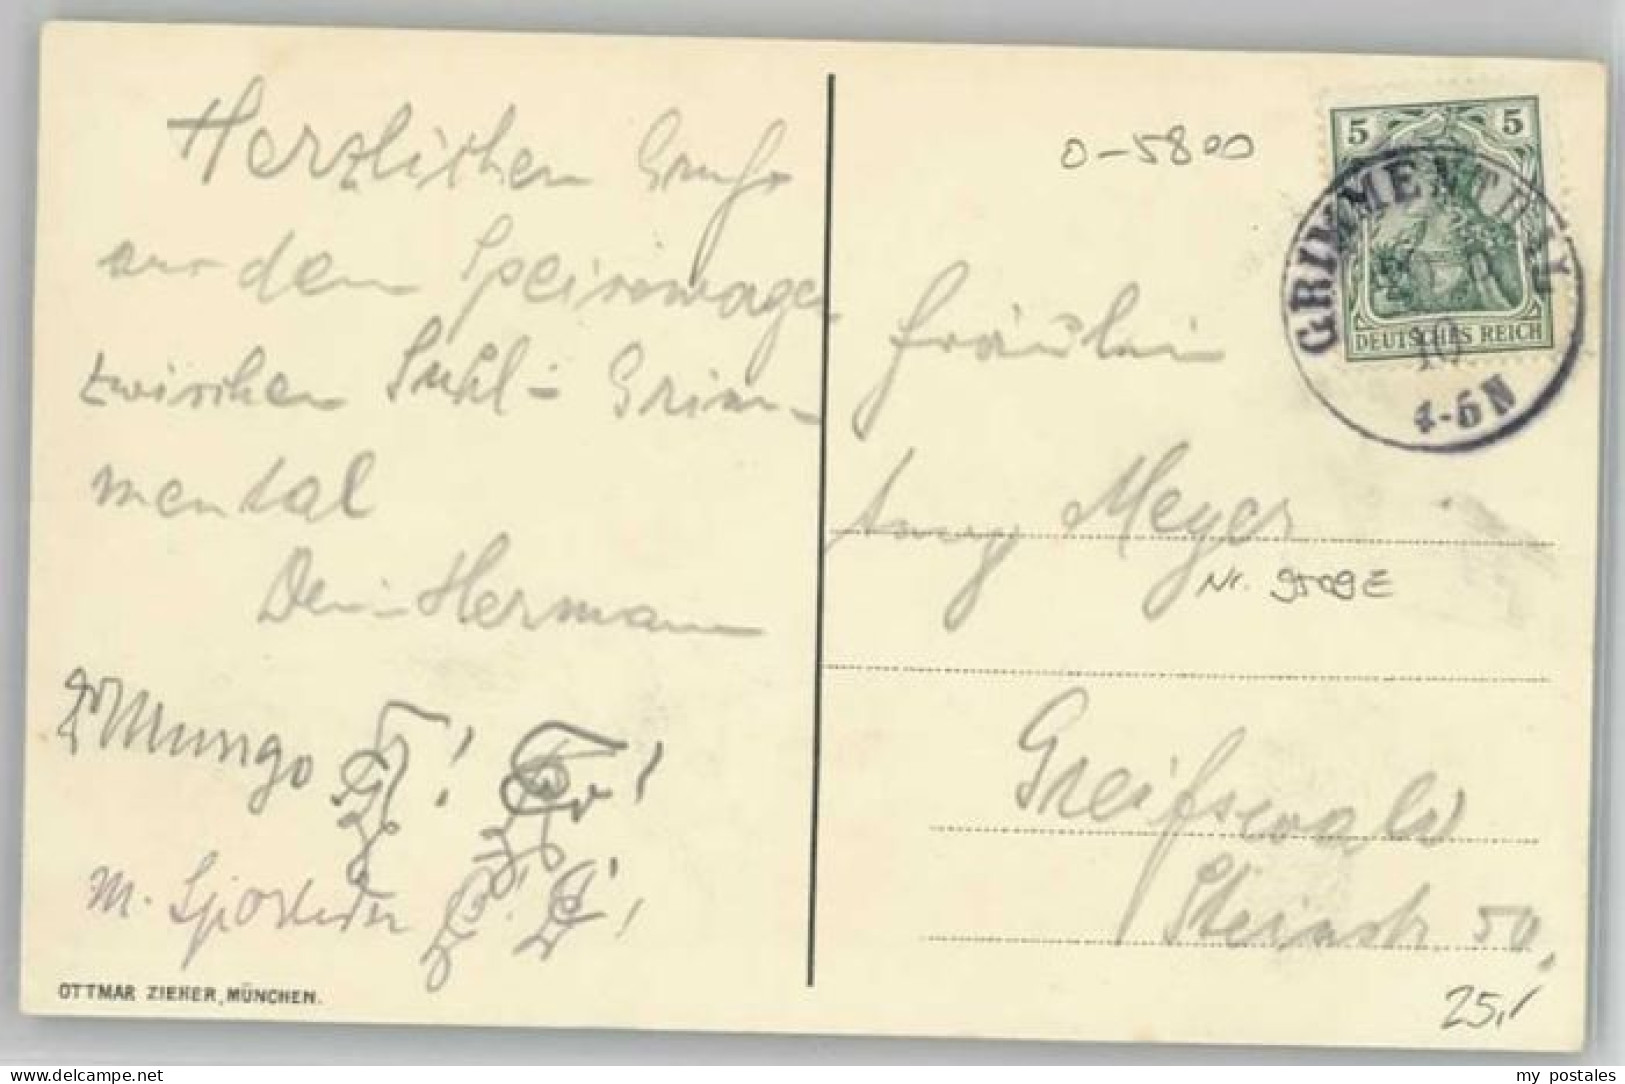 Herzlichen Gruß
aus dem Speisewagen
zwischen Suhl - Grim-
mental
Dein Hermann
Mungo
M.
OTTMAR ZIEHER, MÜNCHEN.
0-5800
5 5
DEUTSCHES REICH
GRIMMENTHAL
10
4-5 N
Fräulein
Meyer
Nr. 9509E
Greifswald
Steinstr. 50
25,-
my postales